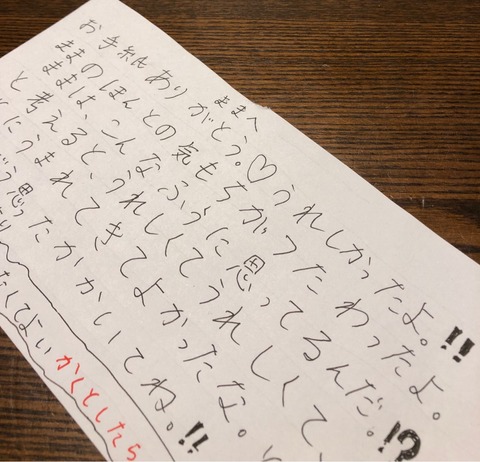 ままへ
お手紙ありがとう。♡うれしかったよ。!!
ままのほんとの気もちがつたわったよ。
ままは、こんなふうに思ってるんだ。!?
と考えると、うれしくてうれしくて、
にうまれてきてよかったな。
う思ったかかいてね。!!
たくてよい かくとしたら